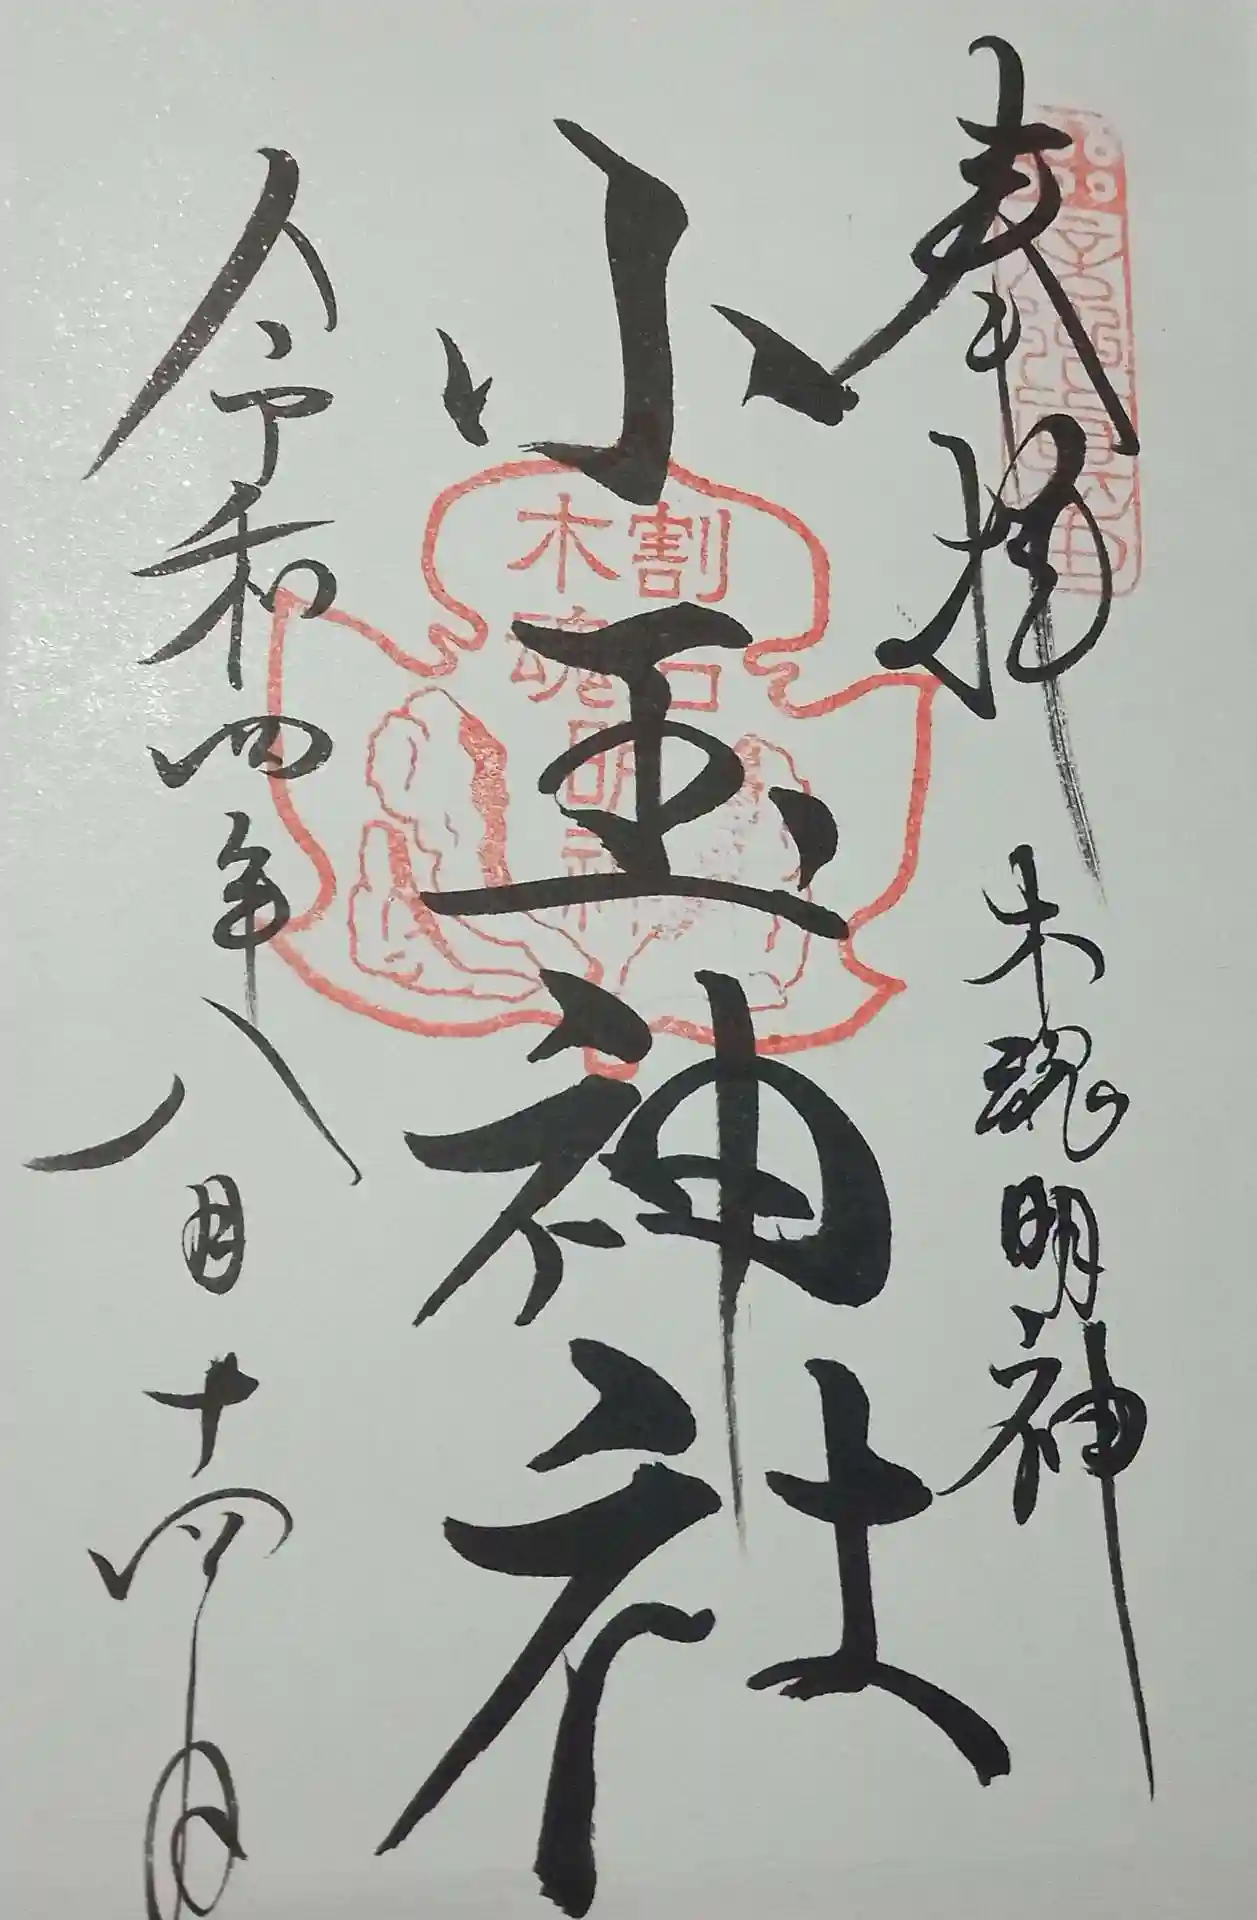 奉拝
木魂明神
小玉神社
割石
木魂明神
令和四年八月十四日